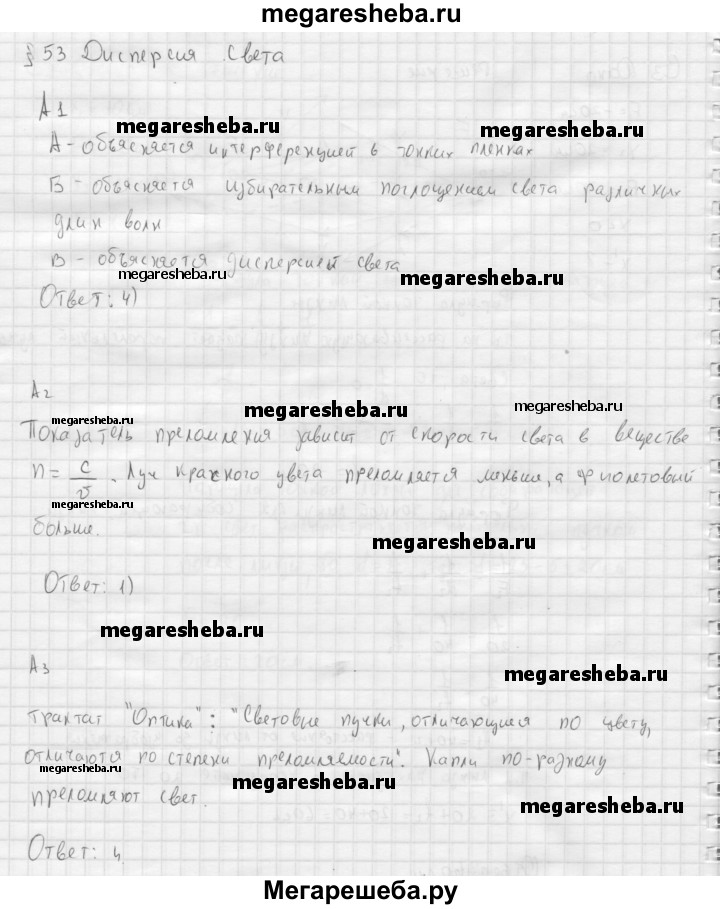 megaresheba.ru
§ 53 Дисперсия света
А1
megaresheba.ru
megaresheba.ru
А - объясняется интерференцией в тонких пленках
Б - объясняется избирательным поглощением света различных
длин волн
В - объясняется дисперсией света
megaresheba.ru
megaresheba.ru
Ответ: 4)
А2
megaresheba.ru
megaresheba.ru
megaresheba.ru
Показатель преломления зависит от скорости света в веществе
n = c/v. Луч красного цвета преломляется меньше, а фиолетовый
megaresheba.ru
больше.
megaresheba.ru
Ответ: 1)
megaresheba.ru
А3
megaresheba.ru
трактат "Оптика": "Световые пучки, отличающиеся по цвету,
отличаются по степени преломляемости". Капли по-разному
megaresheba.ru
megaresheba.ru
преломляют свет.
megaresheba.ru
Ответ: 4
Мегарешеба.ру